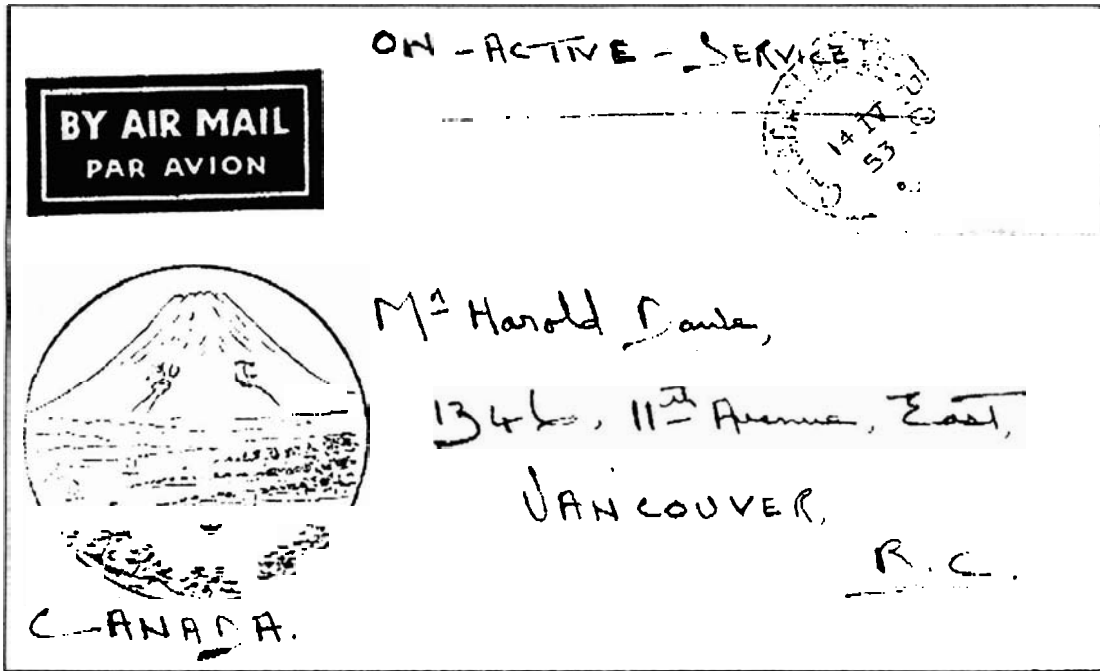 ON - ACTIVE - SERVICE
BY AIR MAIL
PAR AVION
14 IV
53
Mr Harold
1346, 11th Avenue, East,
VANCOUVER,
B.C.
CANADA.